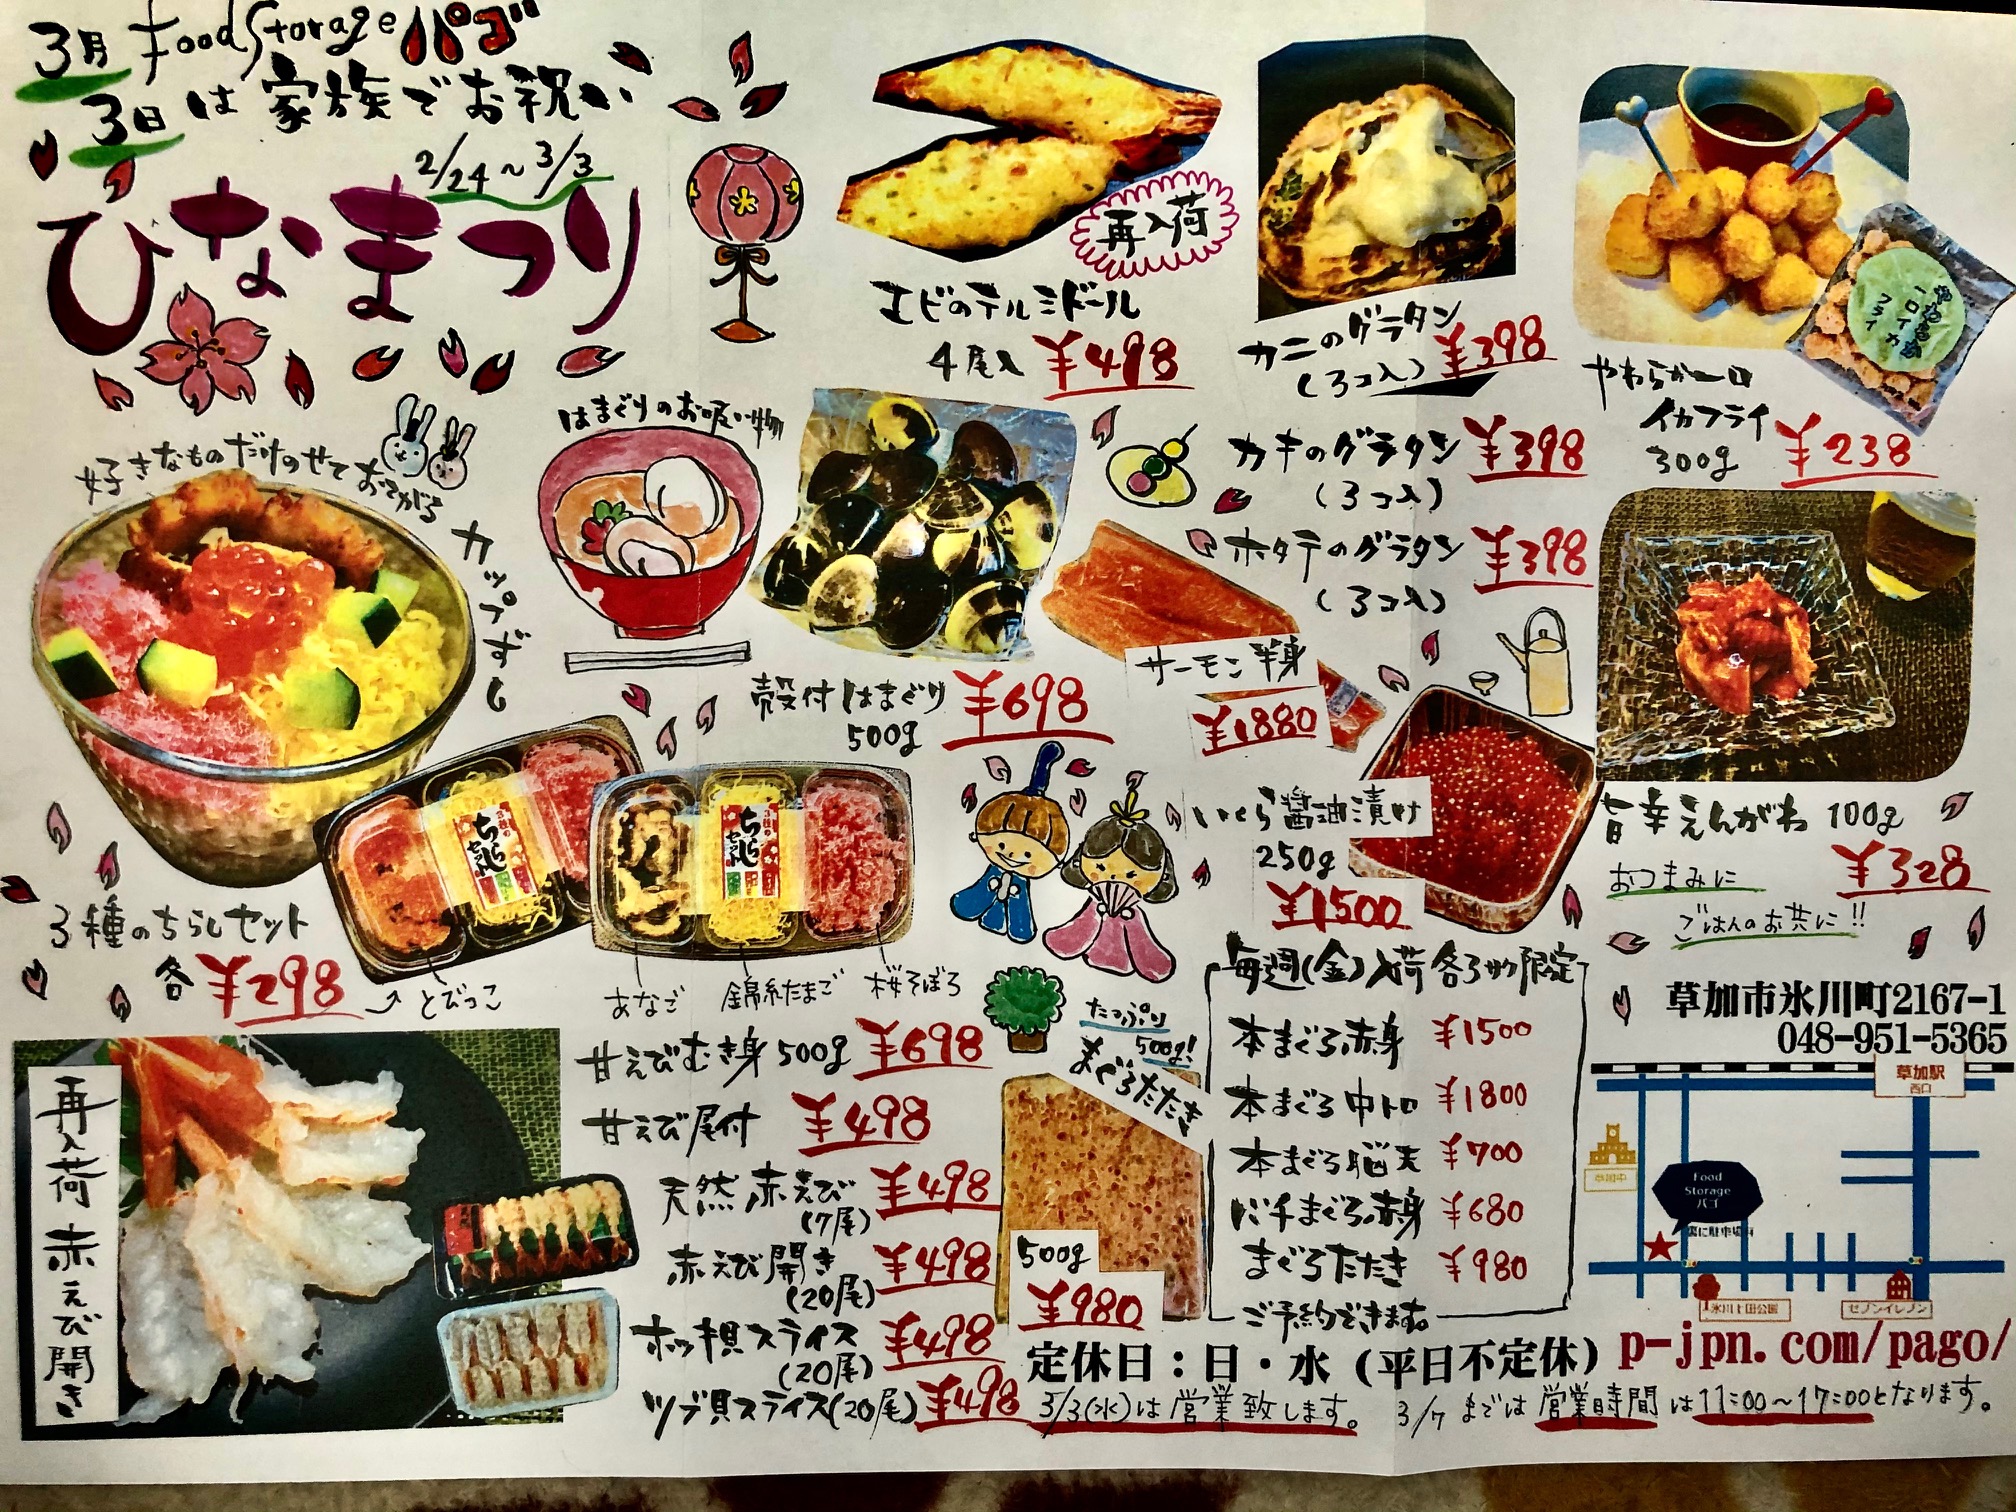 Food Storage パゴ
3月
3日は家族でお祝い
2/24~3/3
ひなまつり
再入荷
エビのテルミドール
4尾入 ¥498
カニのグラタン
(3コ入) ¥398
カキのグラタン ¥398
(3コ入)
ホタテのグラタン ¥398
(3コ入)
一口イカ
フライ
やわらか一口
イカフライ
300g ¥238
好きなものだけのせておてがる
カップずし
はまぐりのお吸い物
殻付はまぐり ¥698
500g
サーモン半身
¥1880
いくら醤油漬け
250g
¥1500
旨辛えんがわ 100g
¥328
おつまみに
ごはんのお共に!!
3種の
ちらし
セット
3種の
ちらし
セット
3種のちらしセット
各 ¥298
とびっこ
あなご
錦糸たまご
桜そぼろ
再入荷 赤えび開き
甘えびむき身 500g ¥698
甘えび尾付 ¥498
天然赤えび ¥498
(7尾)
赤えび開き ¥498
(20尾)
ホッキ貝スライス ¥498
(20尾)
ツブ貝スライス(20尾) ¥498
たっぷり
500g!
まぐろたたき
500g
¥980
毎週(金)入荷 各3サク限定
本まぐろ赤身 ¥1500
本まぐろ中トロ ¥1800
本まぐろ脳天 ¥700
バチまぐろ赤身 ¥680
まぐろたたき ¥980
ご予約できます。
草加市氷川町2167-1
048-951-5365
草加駅
西口
草加中
Food
Storage
パゴ
裏に駐車場有
氷川上田公園
セブンイレブン
p-jpn.com/pago/
定休日:日・水(平日不定休)
3/3(水)は営業致します。 3/7までは営業時間は11:00~17:00となります。